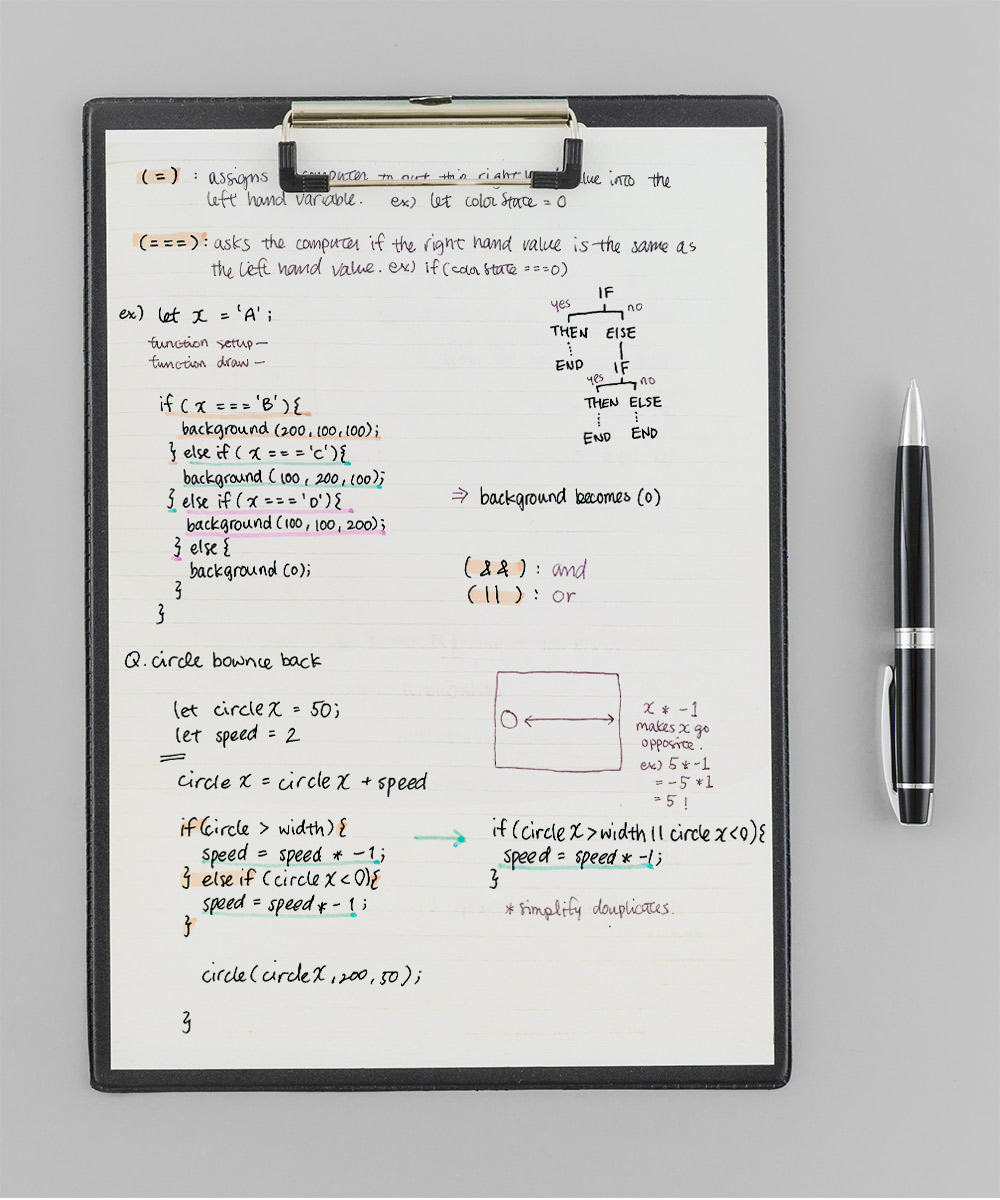 (=) : assigns computer to put this right value into the
left hand variable. ex) let colorState = 0
(===) : asks the computer if the right hand value is the same as
the left hand value. ex) if (colorState ===0)
IF
yes no
THEN ElSE
END IF
yes no
THEN ELSE
END END
ex) let x = 'A' ;
function setup —
function draw —
if ( x === 'B' ) {
background (200, 100, 100);
} else if ( x === 'C' ) {
background (100, 200, 100);
} else if ( x === 'D' ) {
background (100, 100, 200);
} else {
background (0);
}
}
⇒ background becomes (0)
( && ) : and
( || ) : or
Q. circle bownce back
let circle x = 50;
let speed = 2
circle x = circle x + speed
if(circle > width) {
speed = speed * -1;
} else if (circle x < 0){
speed = speed * -1;
}
circle(circle x, 200, 50);
}
x * -1
makes x go
opposite.
ex) 5 * -1
= -5 *1
= 5 !
→ if (circle x > width || circle x < 0) {
speed = speed * -1;
}
* simplify douplicates.